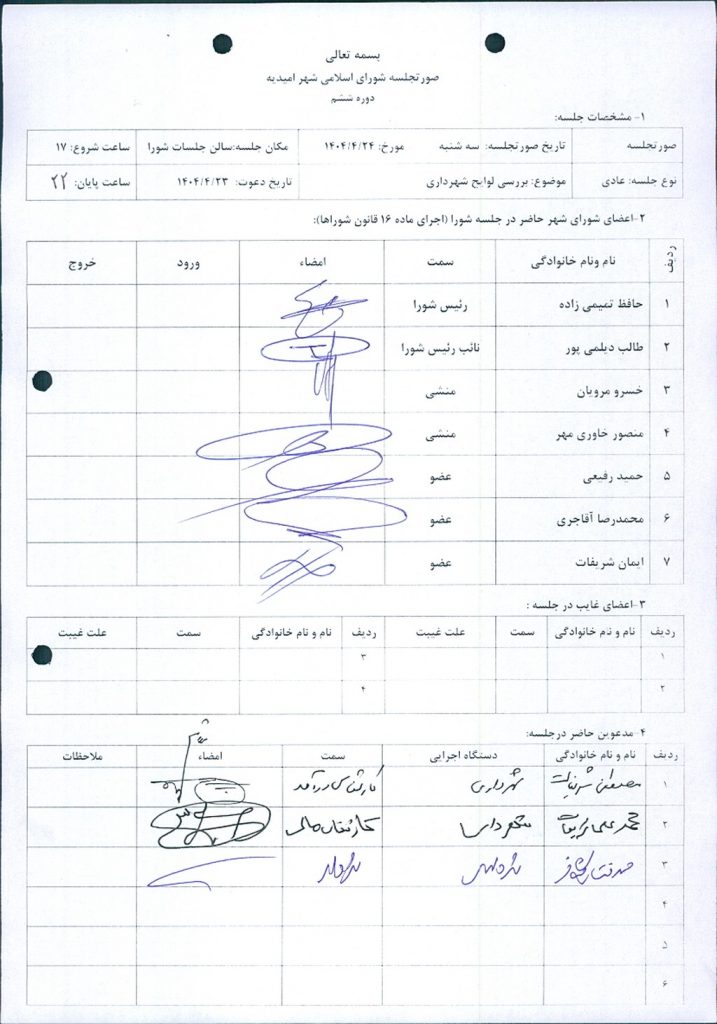 بسمه تعالی
صورتجلسه شورای اسلامی شهر امیدیه
دوره ششم
۱- مشخصات جلسه:
صورتجلسه تاریخ صورتجلسه: سه شنبه مورخ: ۱۴۰۴/۴/۲۴ مکان جلسه:سالن جلسات شورا ساعت شروع: ۱۷
نوع جلسه: عادی موضوع: بررسی لوایح شهرداری تاریخ دعوت: ۱۴۰۴/۴/۲۳ ساعت پایان: ۲۲
۲-اعضای شورای شهر حاضر در جلسه شورا (اجرای ماده ۱۶ قانون شوراها):
ردیف نام ونام خانوادگی سمت امضاء ورود خروج
۱ حافظ تمیمی زاده رئیس شورا
۲ طالب دیلمی پور نائب رئیس شورا
۳ خسرو مرویان منشی
۴ منصور خاوری مهر منشی
۵ حمید رفیعی عضو
۶ محمدرضا آقاجری عضو
۷ ایمان شریفات عضو
۳-اعضای غایب در جلسه :
ردیف نام و نام خانوادگی سمت علت غیبت ردیف نام و نام خانوادگی سمت علت غیبت
۱ ۳
۲ ۴
۴- مدعوین حاضر درجلسه:
ردیف نام و نام خانوادگی دستگاه اجرایی سمت امضاء ملاحظات
۱ مصطفی شهرداری کارشناس درآمد
۲ محمد شهرداری کارشناس مالی
۳ شهرداری شهردار
۴
۵
۶